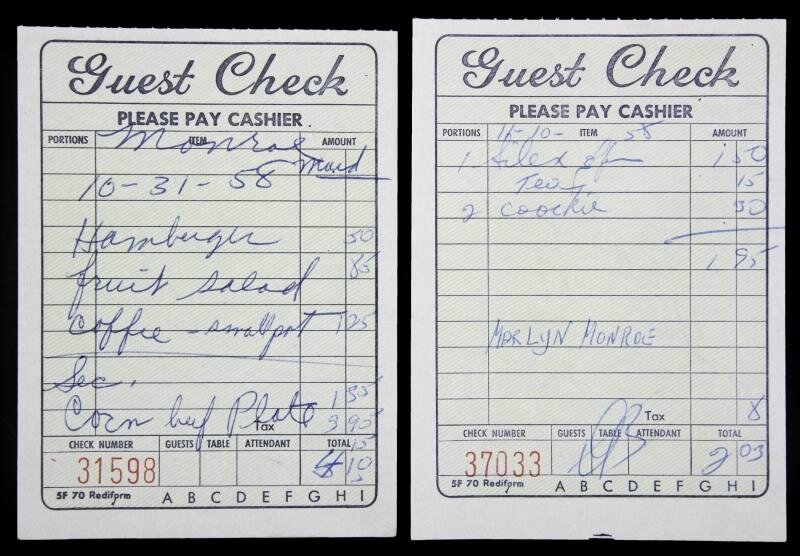 Guest Check
PLEASE PAY CASHIER
PORTIONS ITEM AMOUNT
Monroe
Maid
10-31-58
Hamberger 50
fruit salad 85
Coffee - small pot 1 25
Sec.
Corn bef Plate 1 35
Tax 3 95
15
CHECK NUMBER GUESTS TABLE ATTENDANT TOTAL
31598 4 10
5F 70 Rediform A B C D E F G H I
Guest Check
PLEASE PAY CASHIER
PORTIONS ITEM AMOUNT
11-10-58
1 Silex 1 50
Tea 15
2 Coockie 30
1 95
MARLYN MONROE
Tax 8
CHECK NUMBER GUESTS TABLE ATTENDANT TOTAL
37033 2 03
5F 70 Rediform A B C D E F G H I